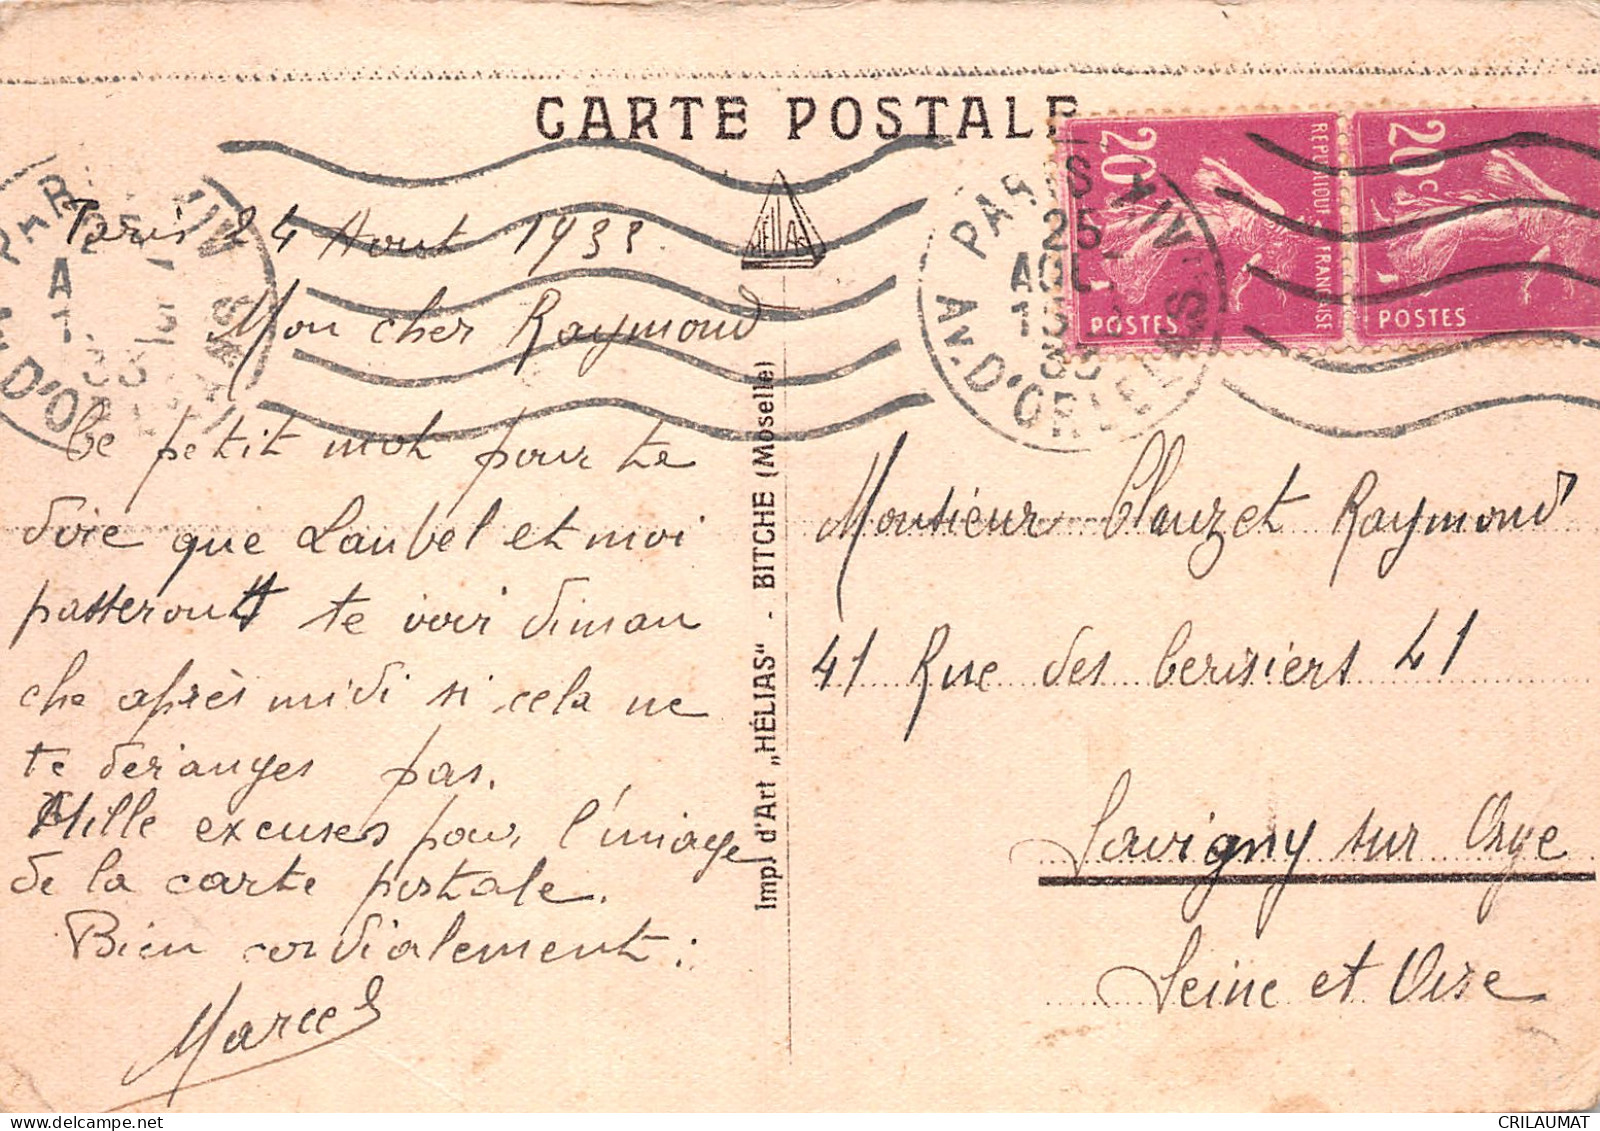 CARTE POSTALE
PARIS XIV
25
AOUT
1933
AV. D'ORLEANS
20c
REPUBLIQUE FRANCAISE
POSTES
20c
POSTES
HELIAS
Paris 24 Aout 1933
Mon cher Raymond
Ce petit mot pour te
dire que Laubel et moi
passeront te voir diman
che après midi si cela ne
te déranges pas.
Mille excuses pour l'image
de la carte postale.
Bien cordialement :
Marcel
Imp. d'Art „HÉLIAS" - BITCHE (Moselle)
Monsieur Clauzet Raymond
41 Rue des Cerisiers 41
Savigny sur Orge
Seine et Oise
CRILAUMAT